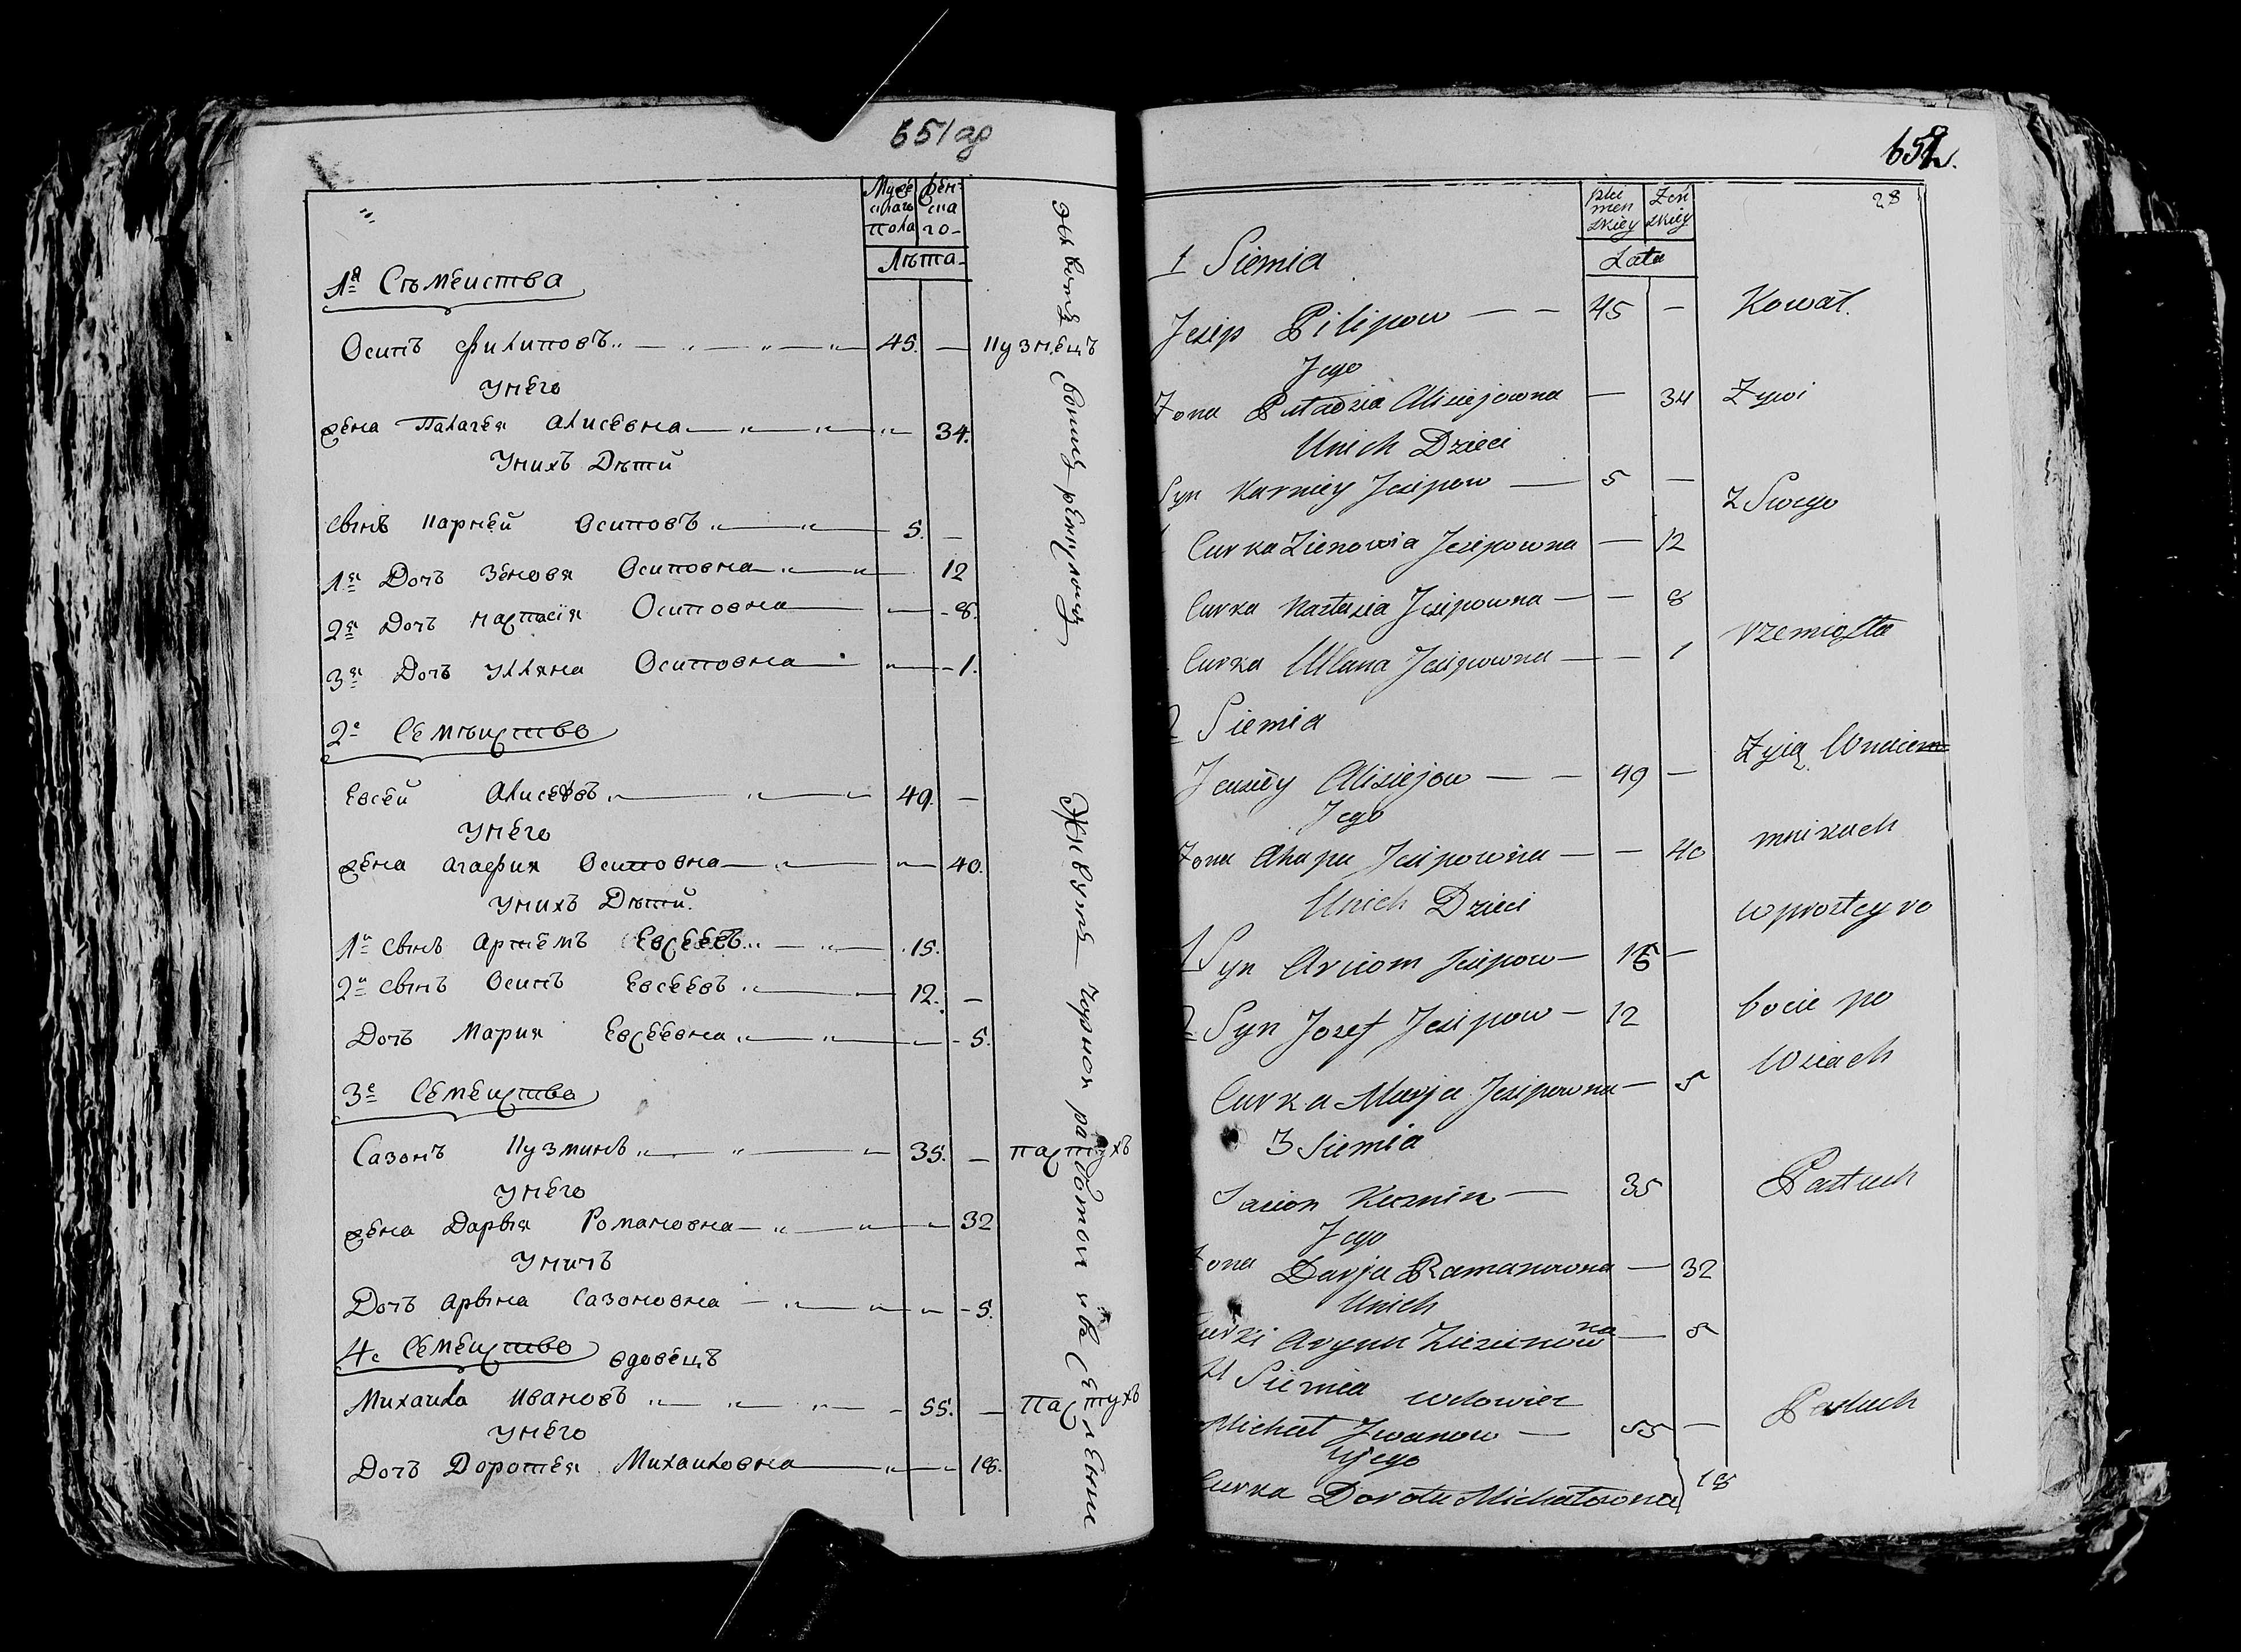 651 ар
Муже
скаго
пола
жен=
ска
го-
Лѣта-
1я Сѣмеиства
Осипъ Филиповъ 45. — Кузнецъ
Унего
жена Палагея Алисеевна 34.
Унихъ Дѣтй
сынъ Карней Осиповъ 5. —
1я Дочъ Зеновя Осиповна 12
2я Дочъ Настасія Осиповна 8.
3я Дочъ Улляна Осиповна 1.
2е Семѣиство
Евсей Алисеевъ 49. —
Унего
жена Агафия Осиповна 40.
Унихъ Дѣтй.
1й сынъ Артемъ Евсеевъ 15.
2й сынъ Осипъ Евсеевъ 12. —
Дочъ Мария Евсеевна 5.
3е Семеиство
Сазонъ Кузминъ 35. — пастухъ
Унего
жена Дарья Романовна 32
Унихъ
Дочъ Арына Сазоновна 5.
4е Семеиство вдовецъ
Михаила Ивановъ 55. — Пастухъ
Унего
Дочъ Доротея Михаиловна 18.
животъ своимъ
Живутъ чорнои работои
652.
28
płci
men
skiey
Żeń
skiey
Lata
1 Siemia
Jesip Pilipow — — 45 — Kowal.
Jego
Żona Paładzia Alisiejowna — 34 Żywi
Unich Dzieci
Syn Karniey Jesipow — 5 — z Swego
Curka Zienowia Jesipowna — 12
Curka Nastazia Jesipowna — — 8
Curka Ulana Jesipowna — — 1 rzemiosła
2 Siemia
Jeusiey Alisiejow — — 49 — Żyią Wnaiem
Jego
Żona Ahapa Jesipowna — — 40 mnikach
Unich Dzieci w prostey ro
1 Syn Arciom Jesipow — 15 —
2 Syn Jozef Jesipow — 12 bocie po
Curka Marja Jesipowna — 5 Wsiach
3 Siemia
Sacion Kuzmin — 35 Pastuch
Jego
Żona Darja Ramanowna — 32
Unich
Curki Aryna Ziezienowna — 5
4 Siemia Wdowiec
Michał Jwanow — 55 — Pastuch
Ujego
Curka Dorota Michałowna 18